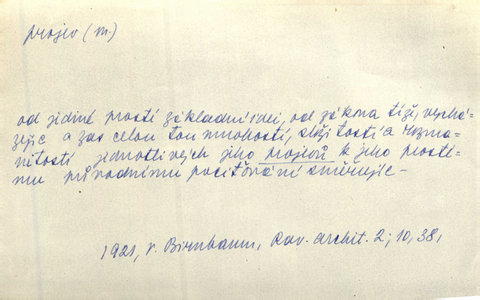 projev (m.)
od jediné prosté základní idei, od zákona tíže, vychá-
zejíc a zas celou tou mnohostí, složitostí a rozma-
nitostí jednotlivých jeho projevů k jeho prosté-
mu původnímu pociťování směřujíc –
1921, V. Birnbaum, Rav. archit. 2; 10, 38,